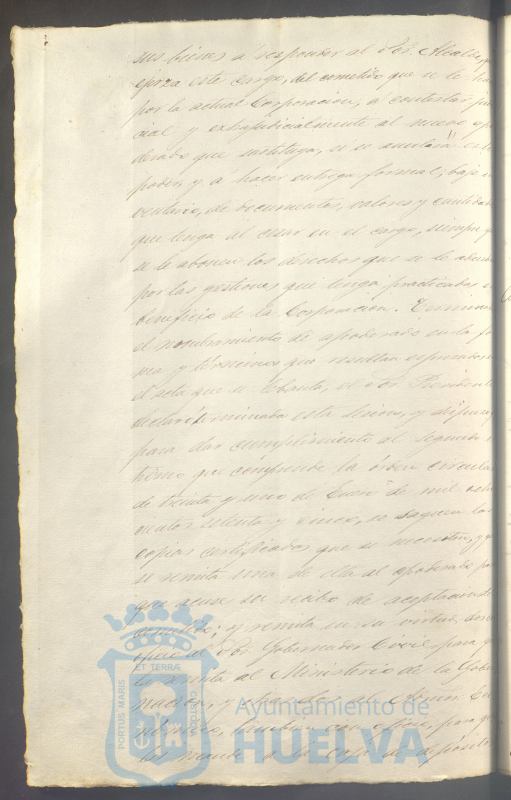 sus bienes á responder al Sor. Alcalde, que
ejerza este cargo, del cometido, que se le
por la actual Corporacion, á contestar ju
cial y extrajudicialmente al nuevo apo
derado que sustituya, si se
poder y á hacer entrega formal, bajo in
ventario, de documentos, valores y cantidades
que tenga al cesar en el cargo, siempre q
se le abonen los derechos que se le
por las gestiones que tenga practicadas en
beneficio de la Corporacion. Terminado
el nombramiento de apoderado en la for
ma y términos que resultan espresados
el acta que se lebanta, el Sor. Presidente
declaró terminada esta sesion, y dispuso
para dar cumplimiento al segundo es
tremo que comprende la órden circular
de treinta y uno de Enero de mil ocho
cientos setenta y cinco, se saquen las
copias certificadas que se necesiten, y q
se remita una de ellas al apoderado para
que acuse su recibo de aceptacion de
cometido; y remita en su virtud,
oficio al Sor. Gobernador Civil para q
la remita al Ministerio de la Gober
nacion, y
tambien con oficio, para que
las mande á la caja de depósitos
PORTUS MARIS
ET TERRÆ
CUSTODIA
Ayuntamiento de
HUELVA